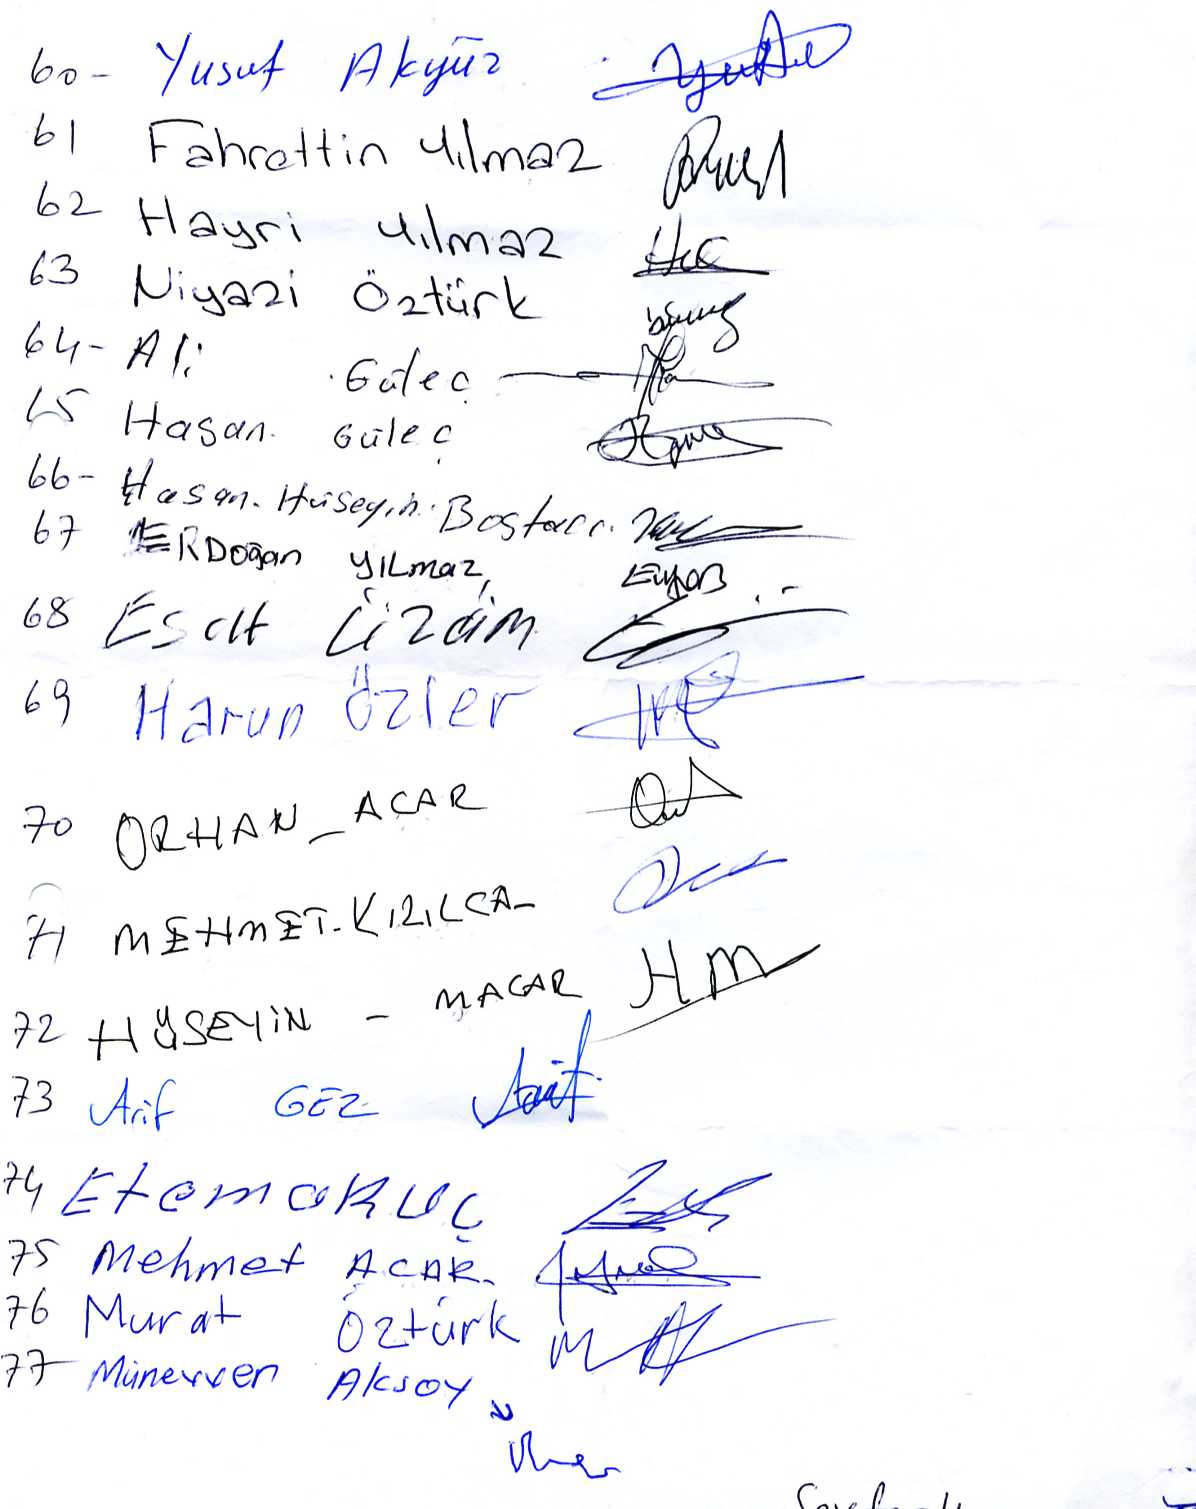 60- Yusuf Akyüz
61 Fahrettin Yılmaz
62 Hayri Yılmaz
63 Niyazi Öztürk
64- Ali Güleç
65 Hasan. Güleç
66- Hasan. Hüseyin.
67 ERDoğan YILmaz
68 Esat Üzüm
69 Harun Özler
70 ORHAN_ACAR
71 MEHMET-KIZILCA-
72 HÜSEYİN - MACAR HM
73 Arif GEZ Arif
74 Etem
75 Mehmet ACAR.
76 Murat Öztürk
77 Münevver Aksoy